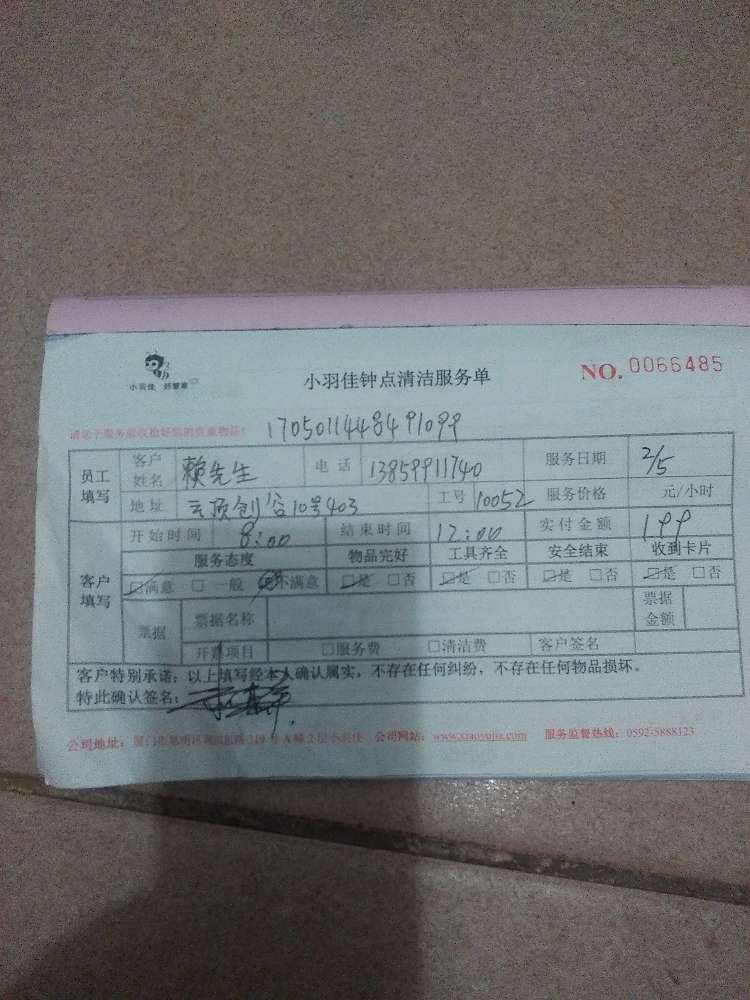 小羽佳 好管家
小羽佳钟点清洁服务单
NO. 0066485
请您于服务前收捡好您的贵重物品！ 1705011448491099
员工填写 客户姓名 赖先生 电话 13859911740 服务日期 2/5
地址 云顶创谷10号403 工号 10052 服务价格 元/小时
客户填写 开始时间 8:00 结束时间 12:00 实付金额 199
服务态度 物品完好 工具齐全 安全结束 收到卡片
□满意 □一般 不满意 □是 □否 □是 □否 □是 □否 □是 □否
票据 票据名称 票据金额
开票项目 □服务费 □清洁费 客户签名
客户特别承诺：以上填写经本人确认属实，不存在任何纠纷，不存在任何物品损坏。
特此确认签名：
公司地址：厦门市思明区 319号A幢2层小羽佳 公司网站：www.xiaoyujia.com 服务监督热线：0592-5888123